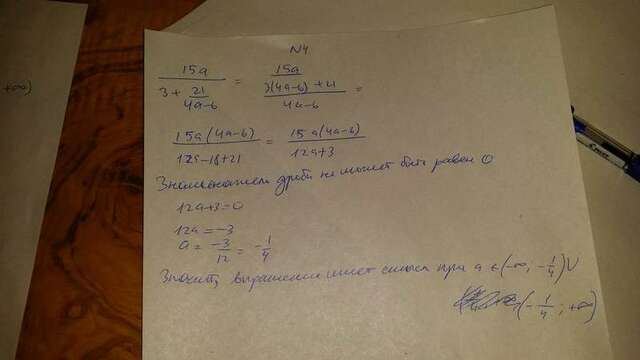 +∞)
N4
15a / (3 + 21/(4a-6)) = 15a / ((3(4a-6)+21)/(4a-6)) =
15a(4a-6) / (12a-18+21) = 15a(4a-6) / (12a+3)
Знаменатель дроби не может быть равен 0
12a+3=0
12a=-3
a = -3/12 = -1/4
Значит, выражение имеет смысл при a ∈ (-∞; -1/4) ∪
(-1/4; +∞)